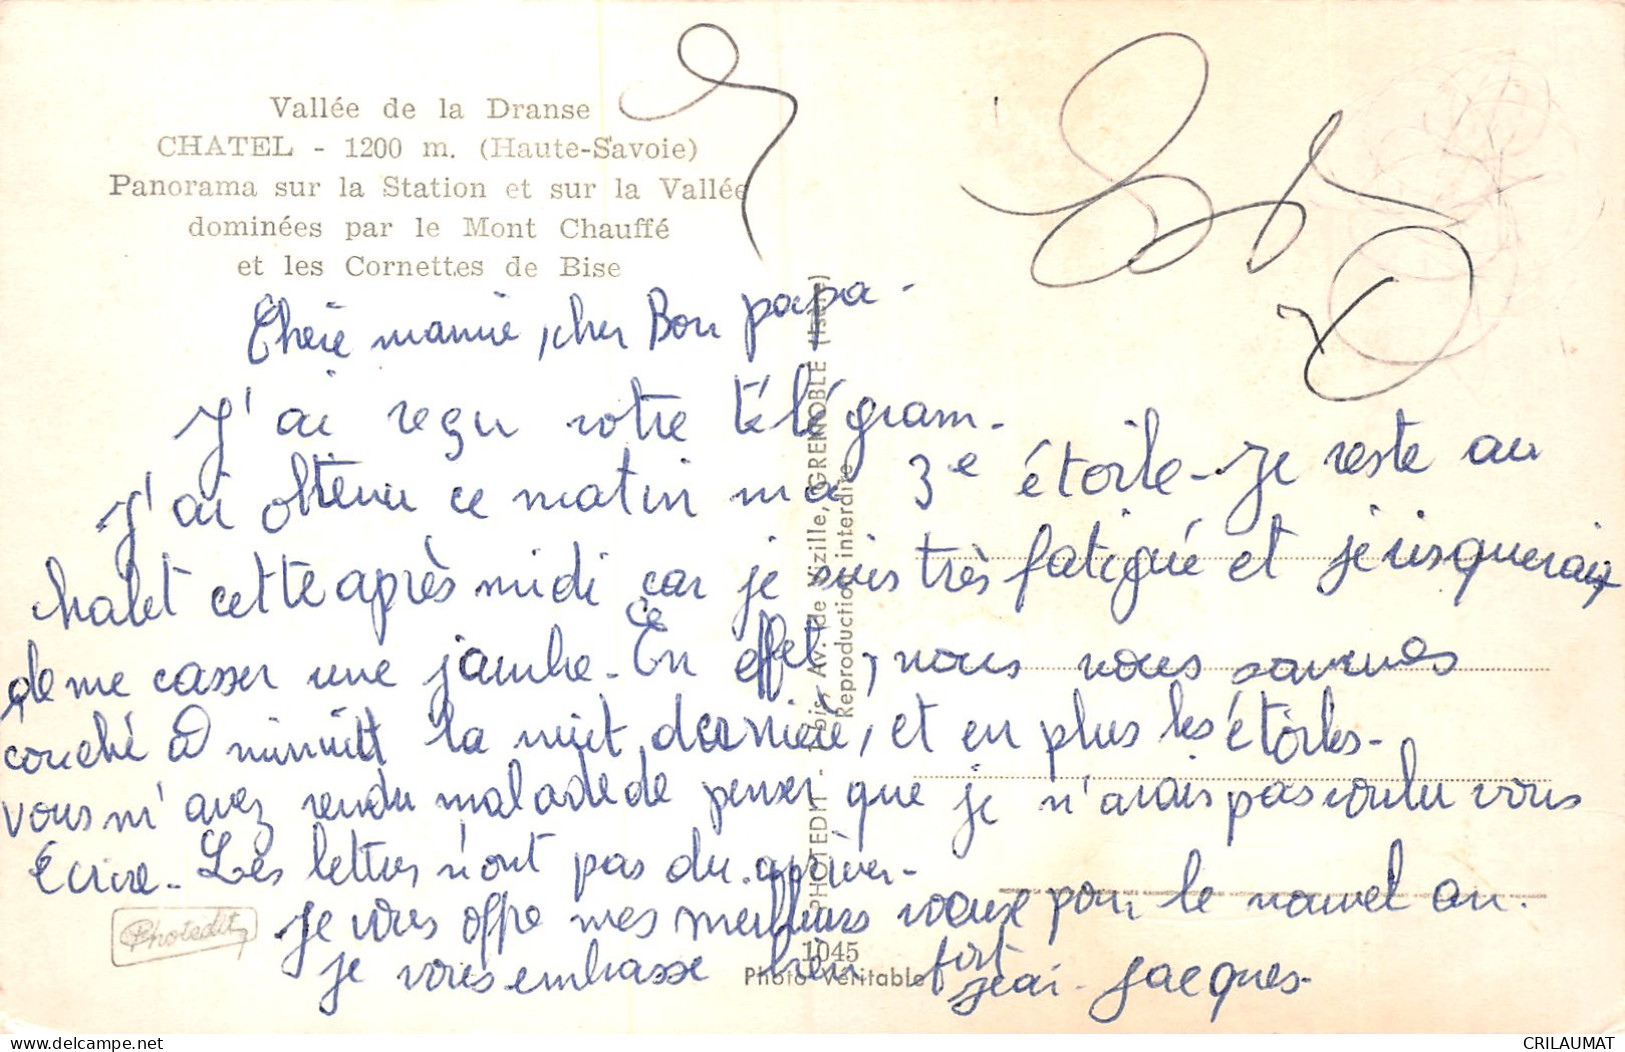 Vallée de la Dranse
CHATEL - 1200 m. (Haute-Savoie)
Panorama sur la Station et sur la Vallée
dominées par le Mont Chauffé
et les Cornettes de Bise
Chère mamie, cher Bon papa -
J'ai reçu votre télégram.
J'ai obtenu ce matin ma 3e étoile - Je reste au
halet cette après midi car je suis très fatigué et je risquerais
de me casser une jambe - En effet, nous nous sommes
couché à minuit la nuit dernière, et en plus les étoiles -
vous m'avez rendu malade de penser que je n'avais pas voulu vous
Écrire - Les lettres n'ont pas du arriver -
Je vous offre mes meilleurs voeux pour le nouvel an.
je vous embrasse bien fort
Jean - Jacques -
Photedit
PHOTEDIT - bis, Av. de Vizille, GRENOBLE (Isère)
Reproduction interdite
1045
Photo Véritable
delcampe.net
CRILAUMAT